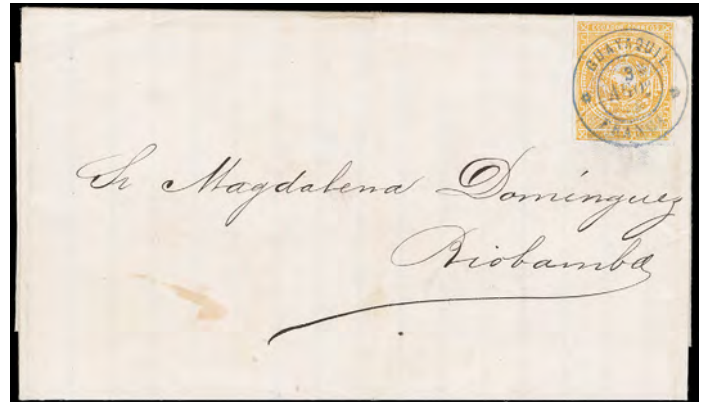 GUAYAQUIL
9
AGO
FRANCA
Sr Magdalena Domínguez
Riobamba